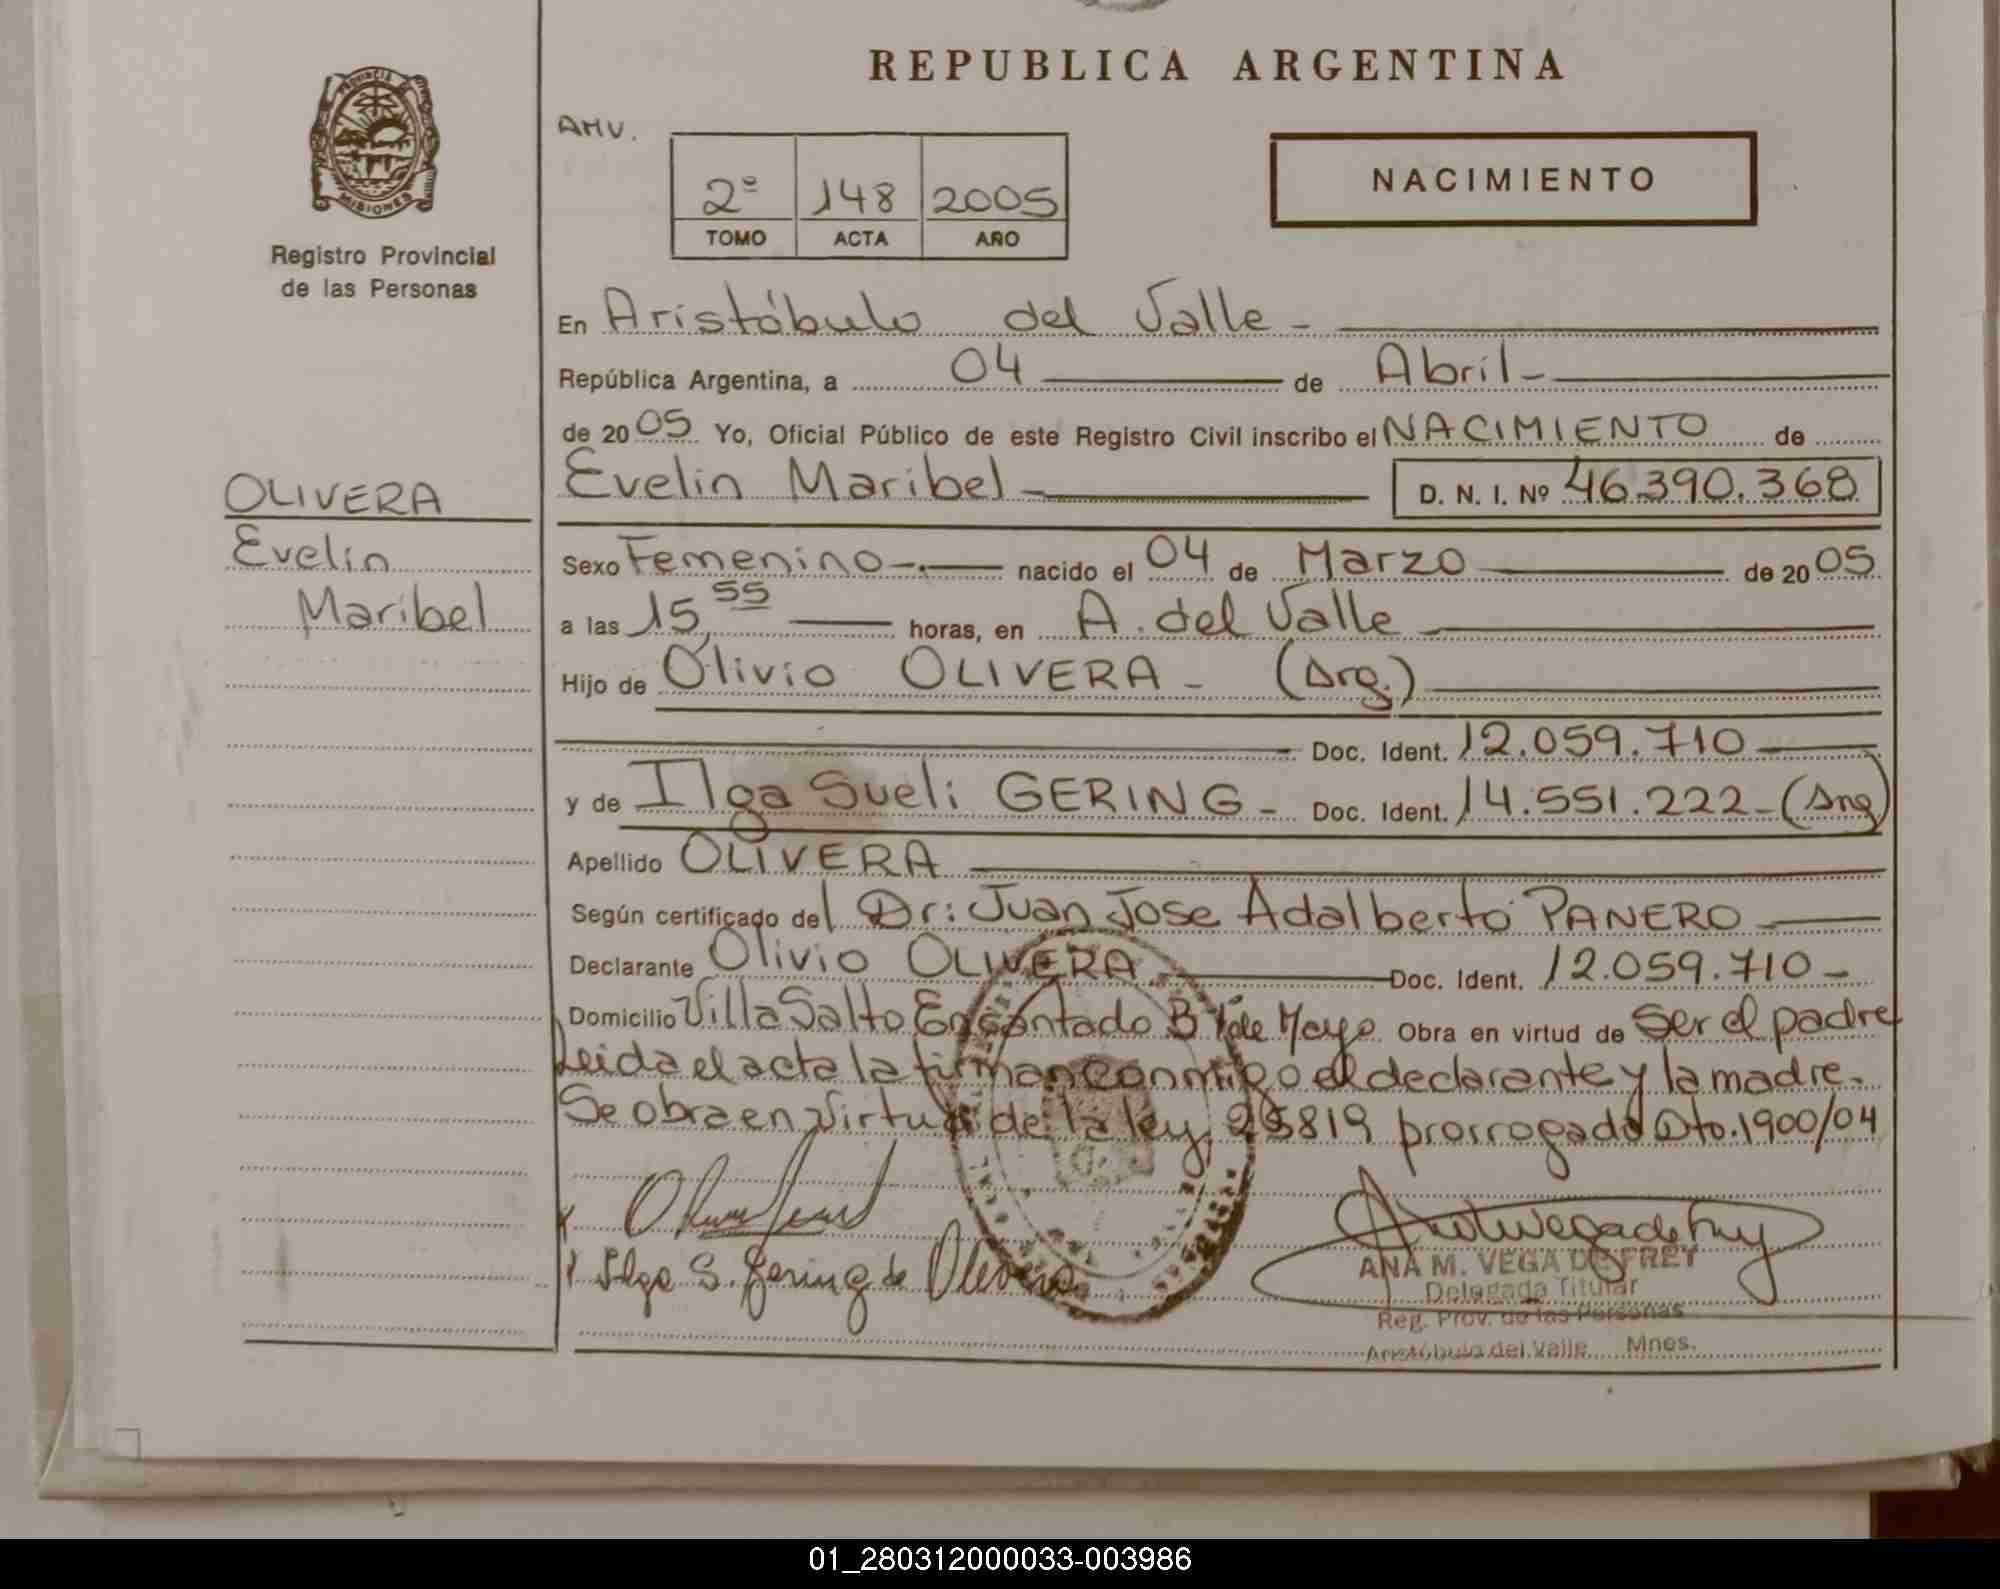 REPUBLICA ARGENTINA
AMV.
NACIMIENTO
2º 148 2005
TOMO ACTA AÑO
PROVINCIA
MISIONES
Registro Provincial
de las Personas
En Aristóbulo del Valle -
República Argentina, a 04 de Abril -
de 2005 Yo, Oficial Público de este Registro Civil inscribo el NACIMIENTO de
Evelin Maribel - D. N. I. Nº 46.390.368
OLIVERA
Evelin
Maribel
Sexo Femenino - nacido el 04 de Marzo de 2005
a las 15,55 horas, en A. del Valle
Hijo de Olivio OLIVERA - (Arg.)
Doc. Ident. 12.059.710
y de Ilga Sueli GERING - Doc. Ident. 14.551.222 - (Arg)
Apellido OLIVERA
Según certificado del Dr: Juan Jose Adalberto PANERO
Declarante Olivio OLIVERA Doc. Ident. 12.059.710 -
Domicilio Villa Salto Encantado Bº 1º de Mayo Obra en virtud de Ser el padre
Leida el acta la firman conmigo el declarante y la madre.
Se obra en virtud de la ley 25819 prorrogado Dto. 1900/04
Ilga S. Gering de Olivera
ANA M. VEGA DE FREY
Delegada Titular
Reg. Prov. de las Personas
Aristóbulo del Valle Mnes.
01_280312000033-003986